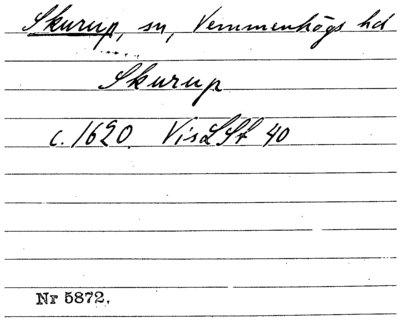 Skurup, sn, Vemmenhögs hd
Skurup
c. 1620. VisLSt 40
Nr 5872.